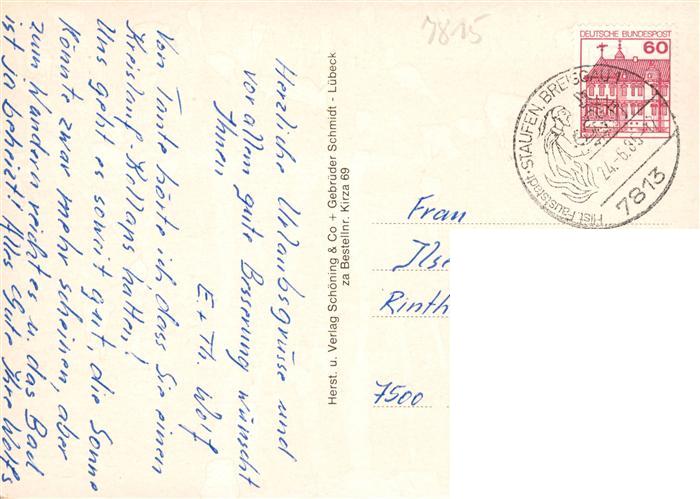 Herzliche Urlaubsgrüsse und
vor allem gute Besserung wünscht
Ihnen
E. + Th. Wolf
Von Tante hörte ich, dass Sie einen
Kreislauf-Kollaps hatten!
Uns geht es soweit gut, die Sonne
könnte zwar mehr scheinen, aber
zum Wandern reicht es u. das Bad
ist ja beheizt! Alles Gute Ihre Wolfs
Herst. u. Verlag Schöning & Co + Gebrüder Schmidt - Lübeck
za Bestellnr. Kirza 69
7815
DEUTSCHE BUNDESPOST
60
STAUFEN, BREISGAU 1
24.-6.85
7813
Hist. Fauststadt
Frau
Ilse
Rinth
7500